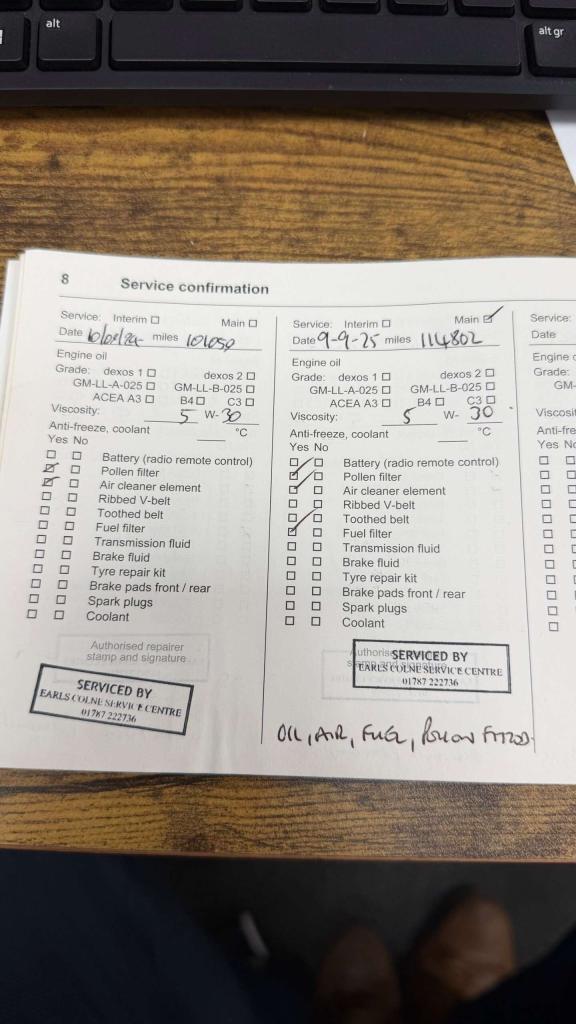 alt
alt gr
8 Service confirmation
Service: Interim Main
Date miles 101050
Engine oil
Grade: dexos 1 dexos 2
GM-LL-A-025 GM-LL-B-025
ACEA A3 B4 C3
Viscosity: 5 W-30
Anti-freeze, coolant °C
Yes No
Battery (radio remote control)
Pollen filter
Air cleaner element
Ribbed V-belt
Toothed belt
Fuel filter
Transmission fluid
Brake fluid
Tyre repair kit
Brake pads front / rear
Spark plugs
Coolant
Authorised repairer
stamp and signature
SERVICED BY
EARLS COLNE SERVICE CENTRE
01787 222736
Service: Interim Main
Date 9-9-25 miles 114802
Engine oil
Grade: dexos 1 dexos 2
GM-LL-A-025 GM-LL-B-025
ACEA A3 B4 C3
Viscosity: 5 W- 30
Anti-freeze, coolant °C
Yes No
Battery (radio remote control)
Pollen filter
Air cleaner element
Ribbed V-belt
Toothed belt
Fuel filter
Transmission fluid
Brake fluid
Tyre repair kit
Brake pads front / rear
Spark plugs
Coolant
SERVICED BY
EARLS COLNE SERVICE CENTRE
01787 222736
OIL, AIR, FUEL,
Service:
Date
Engine
Grade:
GM-
Viscosi
Anti-fre
Yes No